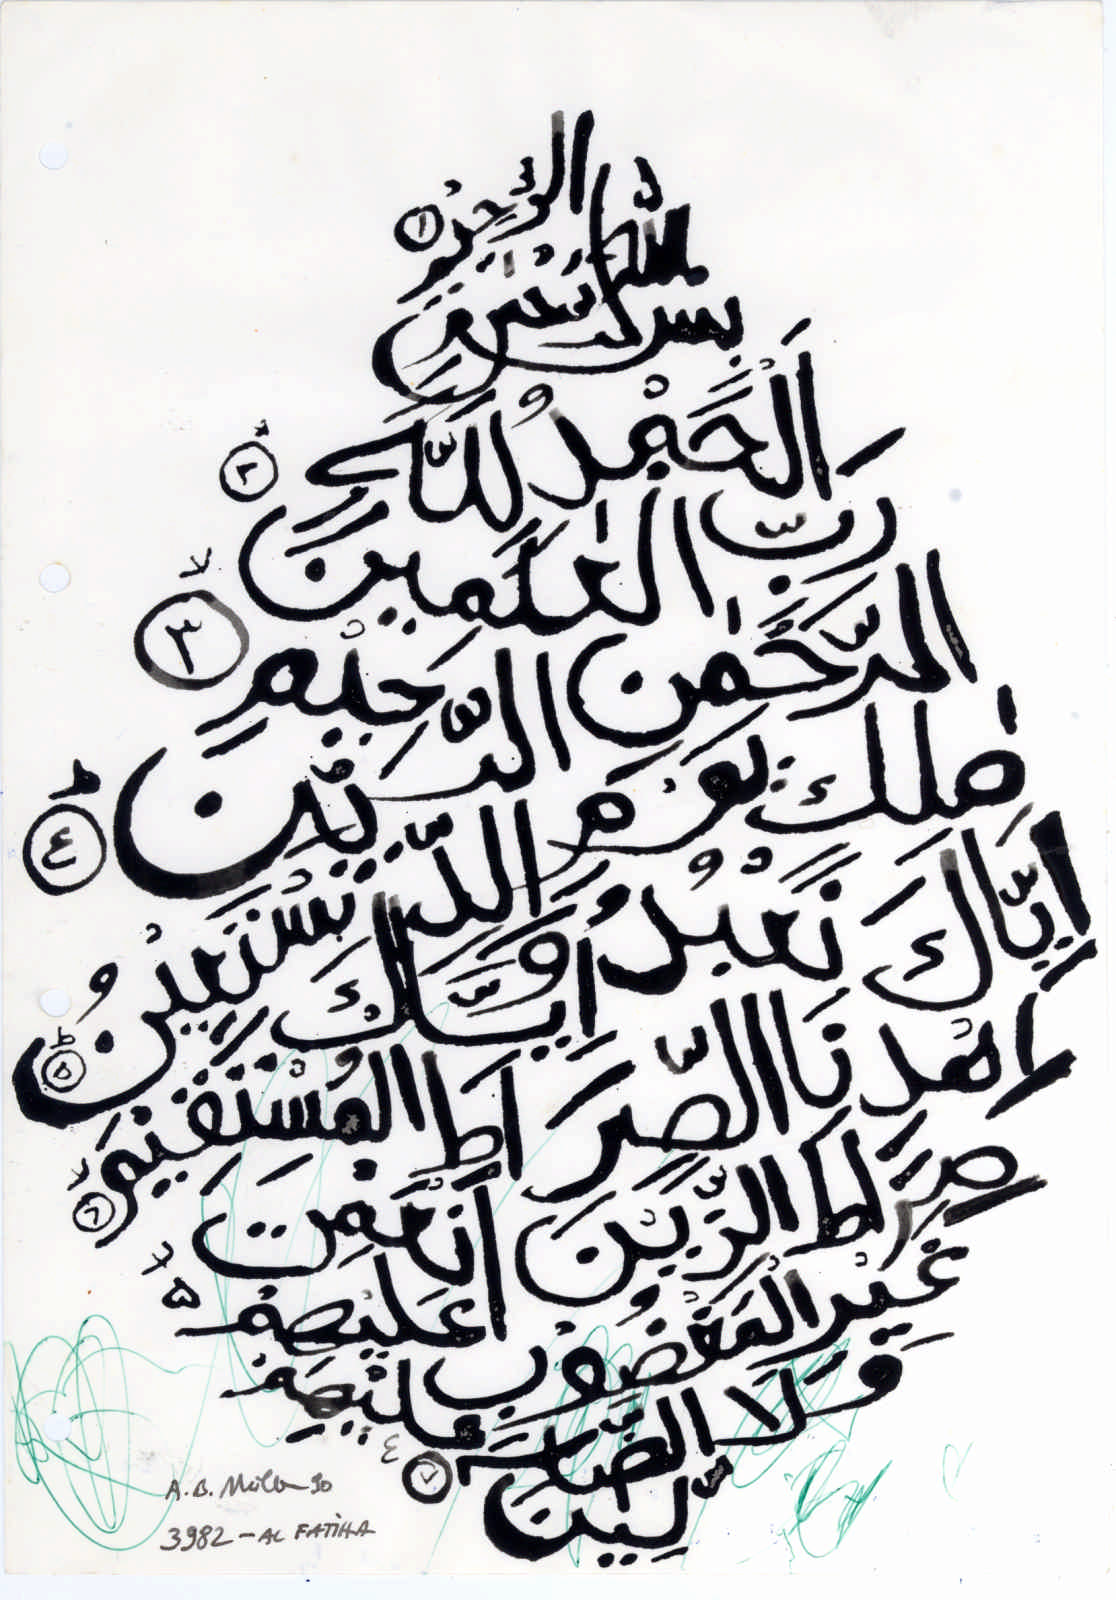 بسم الله الرحمن الرحيم ١
اَلْحَمْدُ لِلَّهِ
رَبِّ الْعٰلَمِينَ ٢
الرَّحْمٰنِ الرَّحِيمِ ٣
مٰلِكِ يَوْمِ الدِّينِ ٤
إِيَّاكَ نَعْبُدُ وَإِيَّاكَ نَسْتَعِينُ ٥
اِهْدِنَا الصِّرَاطَ الْمُسْتَقِيمَ ٦
صِرَاطَ الَّذِينَ أَنْعَمْتَ عَلَيْهِمْ
غَيْرِ الْمَغْضُوبِ عَلَيْهِمْ
وَلَا الضَّالِّينَ ٧
A. B.
3982 - AL FATIHA